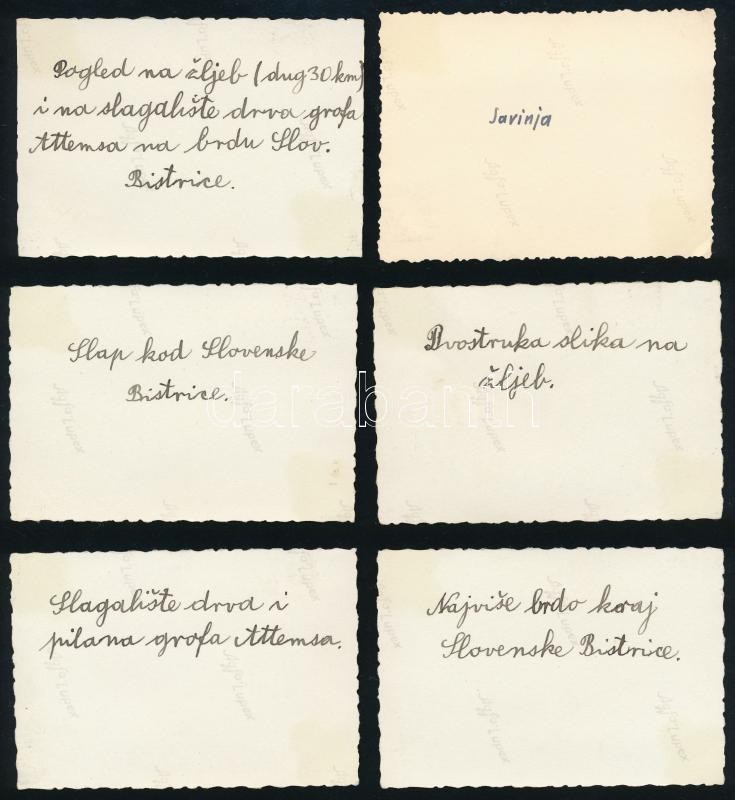 Pogled na žljeb (dug 30 km)
i na slagalište drva grofa
Attemsa na brdu Slov.
Bistrice.
Savinja
Slap kod Slovenske
Bistrice.
Dvostruka slika na
žljeb.
darabanth
Slagalište drva i
pilana grofa Attemsa.
Najviše brdo kraj
Slovenske Bistrice.